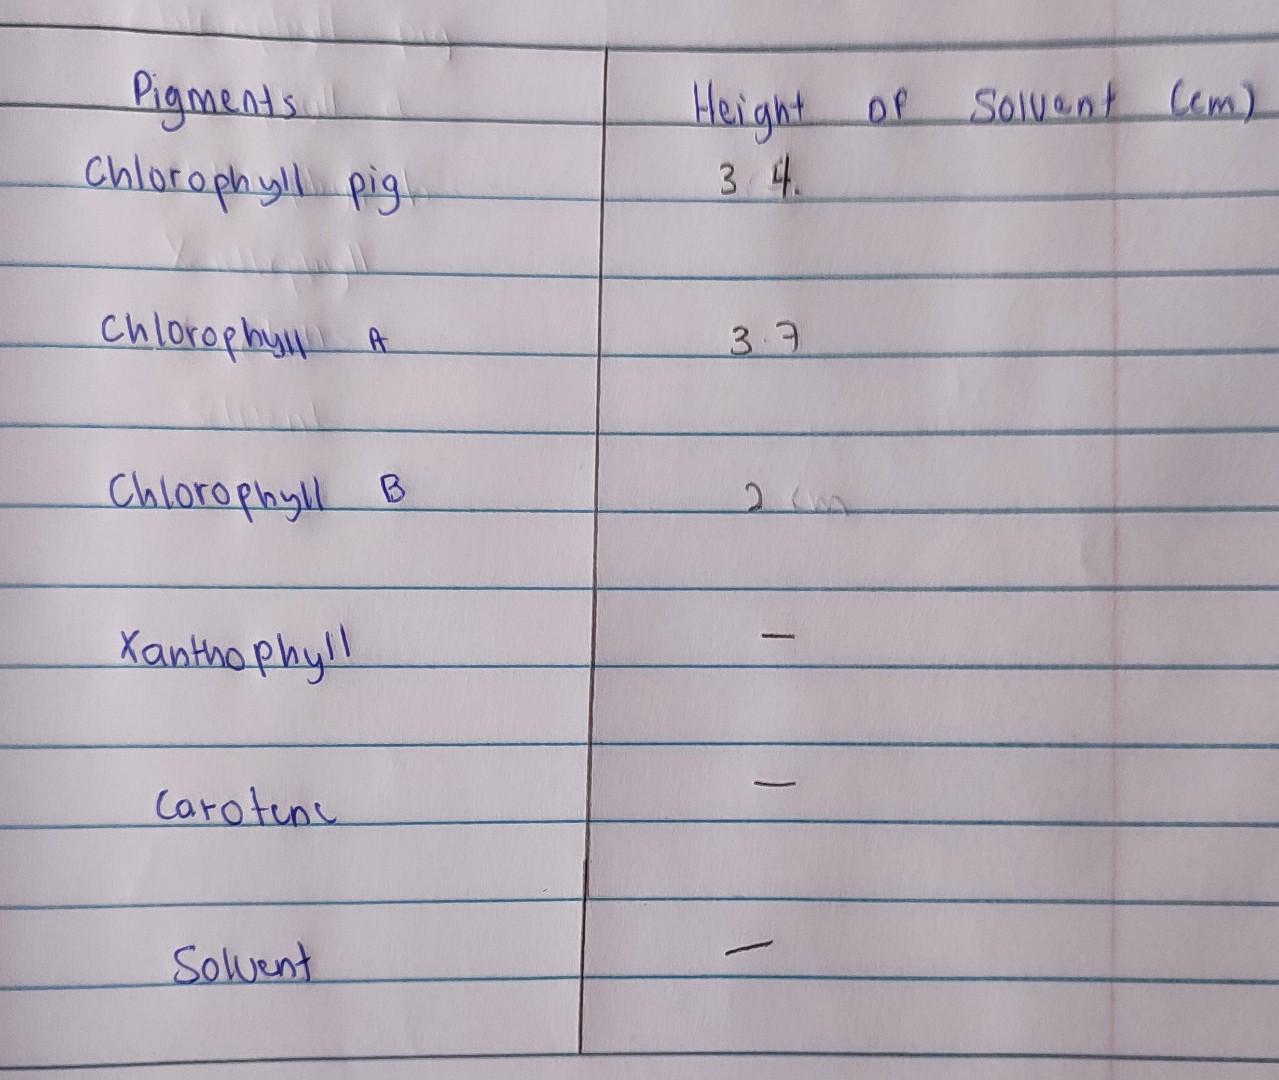 Pigments Height of Solvent (cm)
Chlorophyll pig 3.4.
Chlorophyll A 3.7
Chlorophyll B 2 cm
Xanthophyll —
Carotene —
Solvent —